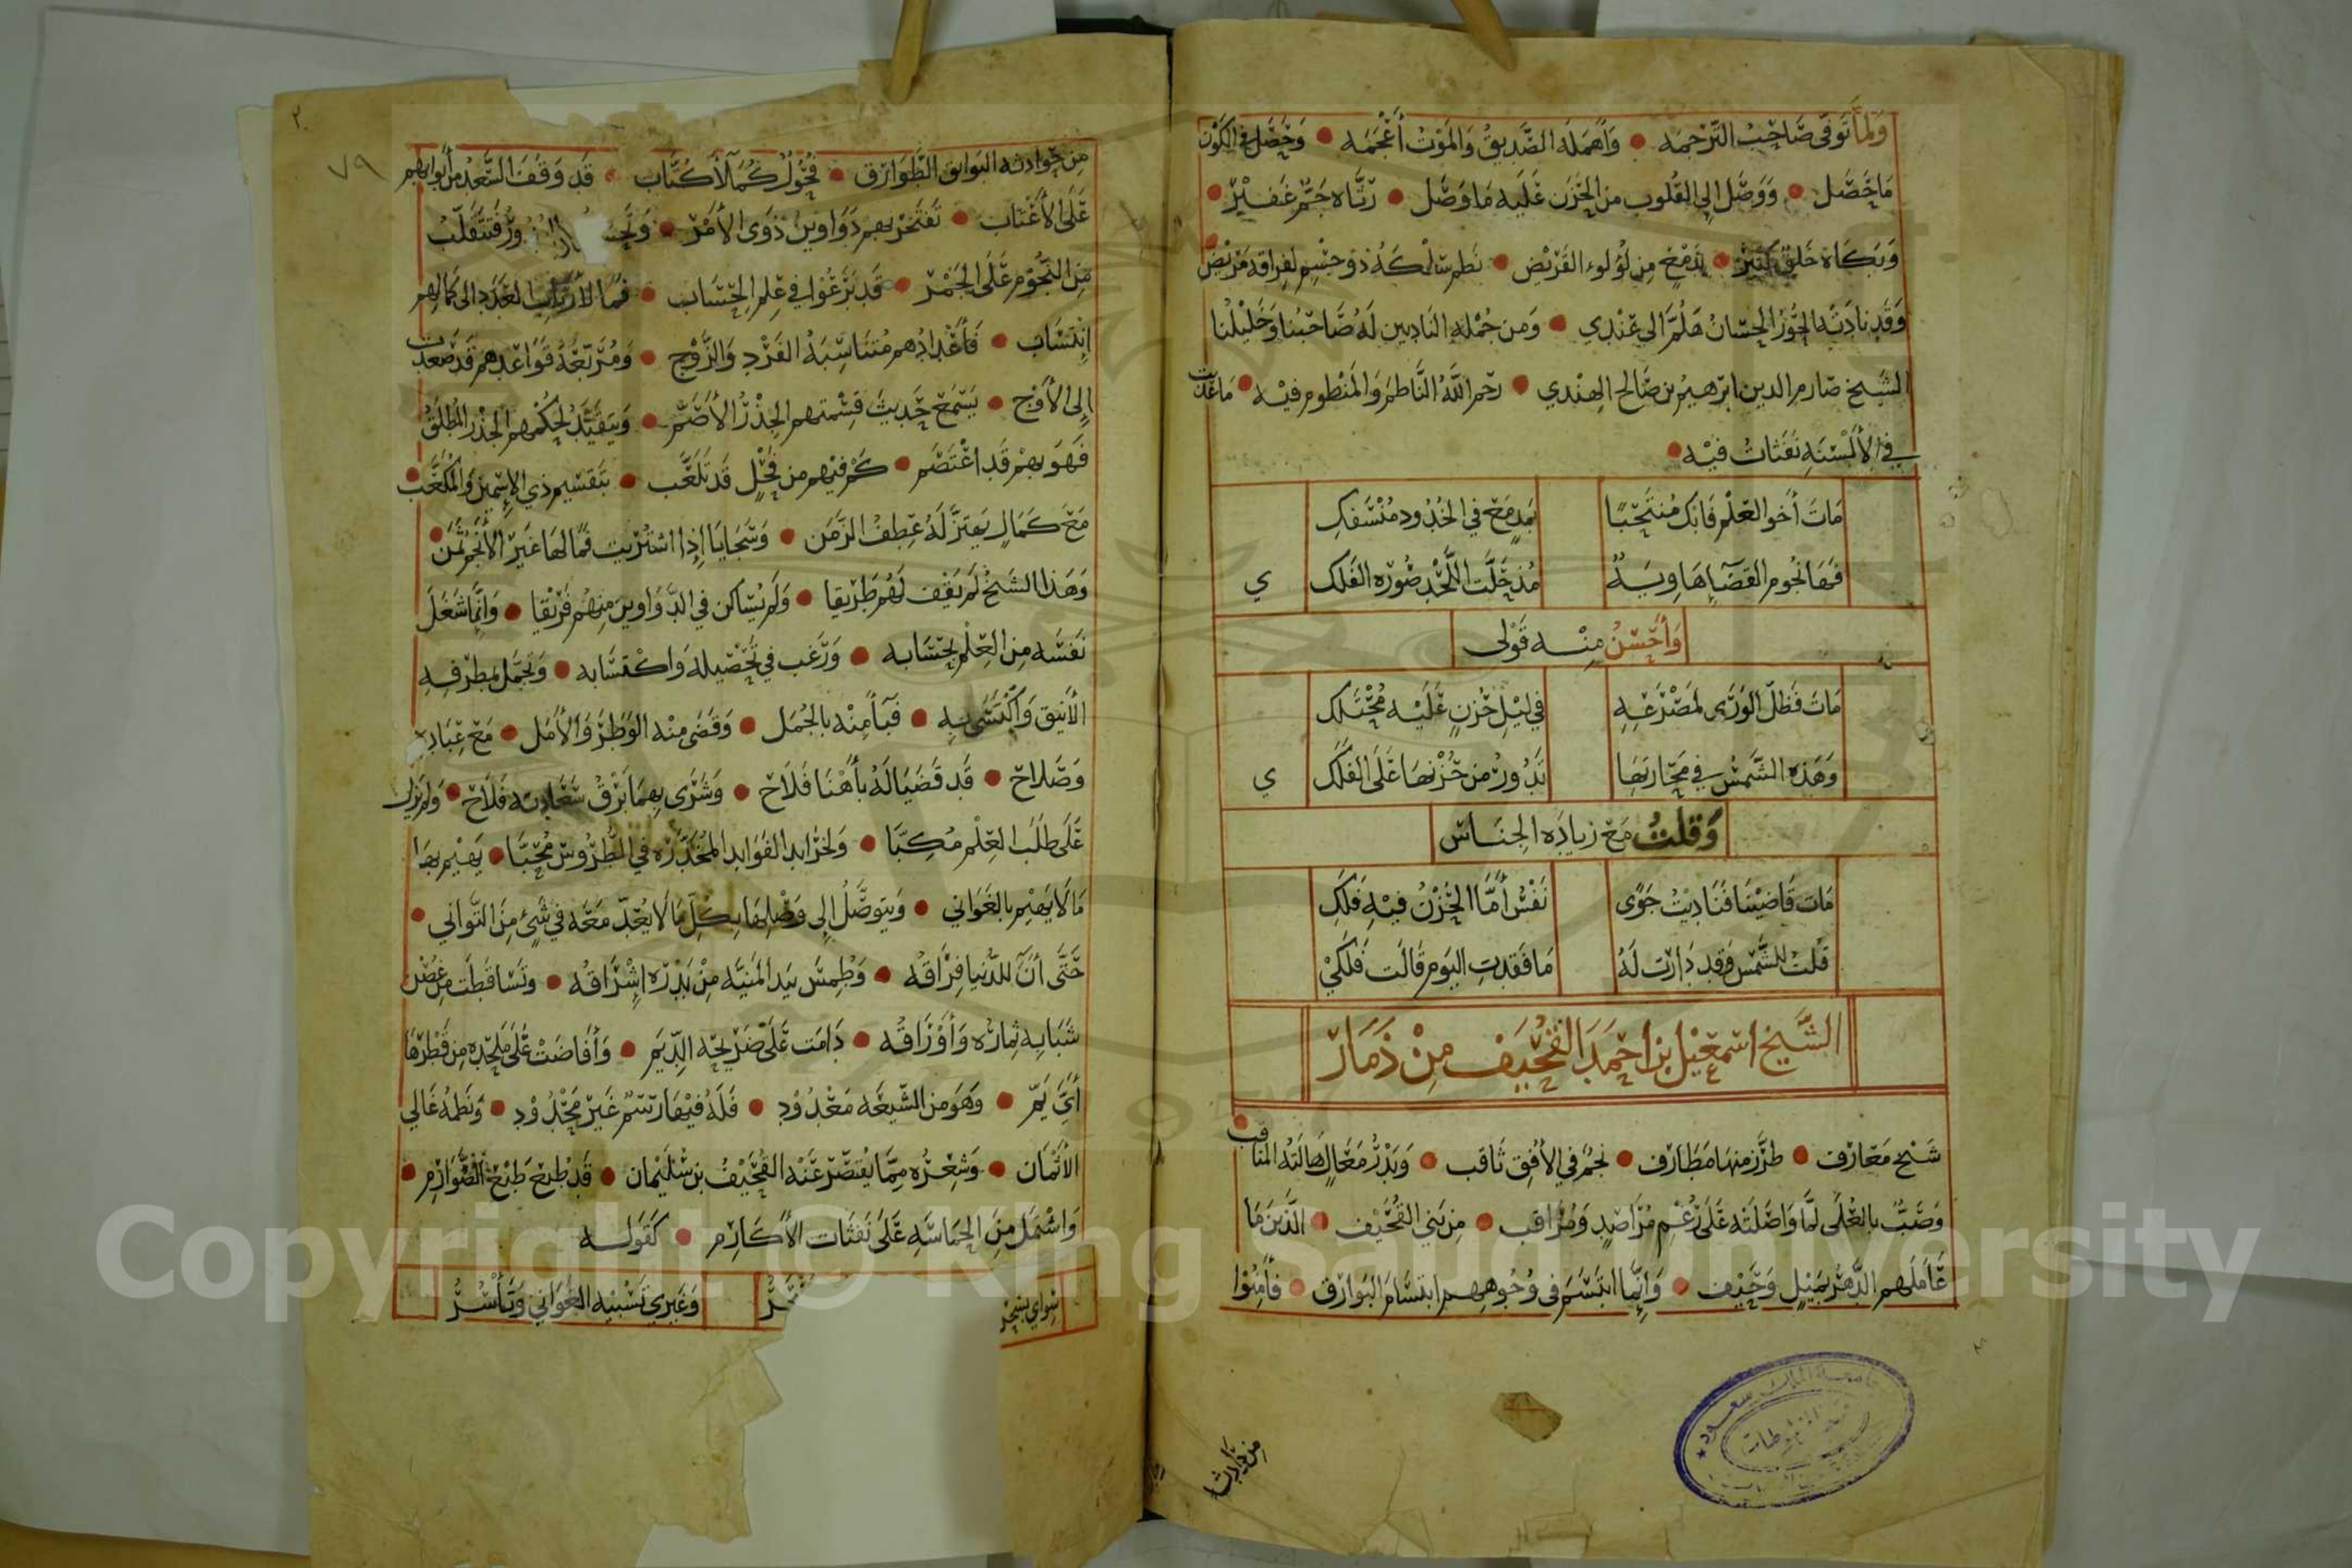 ولما توفى صاحب الترجمه • وأهمله الصديق والموت أعجمه • وحصل في الكون
ما حصل • ووصل إلى القلوب من الحزن عليه ما وصل • رثاه جم غفير •
وبكاه خلق كثير • بدمع من لؤلوء القريض • نظم سلكه ذو جسم لفراقه مريض •
وقد نادته الحور الحسان هلم الى عندي • ومن جمله النادبين له صاحبنا وخليلنا
الشيخ صارم الدين ابرهيم بن صالح الهندي • رحم الله الناظم والمنظوم فيه • ما غدت
في الألسنه نفثات فيه •
مات أخو العلم فابك منتحبًا
بمدمع في الخدود منسفك
فها نجوم القضا هاويةٌ
مذ حلت اللحد صوره الفلك
ي
وأحسن منه قولى
مات فظل الورى لمصرعه
في ليل حزن عليه محتلك
وهذه الشمس في مجاريها
تدور من حزنها على الفلك
ي
وقلت مع زياده الجناس
مات قاضينا فناديت جوًى
نفس أما الحزن فيه فلك
قلت للشمس وقد دارت له
ما فقدت اليوم قالت فلكي
الشيخ اسمعيل بن احمد القحيف من ذمار
شيخ معارف • طرز منها مطارف • نجم في الأفق ثاقب • وبدر معال هالته المناقب
وصب بالعلى لما واصلته على رغم مراصد ومراقب • من بني القحيف • الذين ما
عاملهم الدهر بميل وحيف • وإنما ابتسم في وجوههم ابتسام البوارق • فأمنوا
من حوادثه
٧٩
من حوادثه البوايق الطوارق • فحول كملا كتاب • قد وقف السعد من أبوابهم
على الأعتاب • تفتخر بهم دواوين ذوى الأمر • ورق فتتقلب
من النجوم على الجمر • قد بزغوا في علم الحساب • فما لأرباب العدد الى كمالهم
انتساب • فأعدادهم متناسبة الفرد والزوج • ومربعة قواعدهم قد صعدت
إلى الأوج • يسمع حديث قسمتهم الجذر الأصم • ويتقيد لحكمهم الجذر المطلق
فهو بهم قد اعتصم • كم فيهم من فحل قد تلعب • بتقسيم ذي الإسمين والمكعب •
مع كمال يهتز له عطف الزمن • وسجايا إذا اشتريت فما لها غير الأنجم ثمن •
وهذا الشيخ لم يقف لهم طريقا • ولم يساكن في الدواوين منهم فريقا • وانما شغل
نفسه من العلم بحسابه • ورغب في تحصيله واكتسابه • وتجمل بمطرفه
الأنيق واكتسى به • فبآ منه بالجمل • وقضى منه الوطر والأمل • مع عباده
وصلاح • قد قضيا له بأهنا فلاح • وشرى بهما برق سعادته فلاح • ولم يزل
على طلب العلم مكبا • ولخرايد الفوايد المخدره في الطروس محبا • يهيم بها
ما لا يهيم بالغواني • ويتوصل إلى وصلها بكل ما لا يعد معه في شيء من التواني •
حتى أن للدنيا فراقه • وطمس بيد المنيه من بدره اشراقه • وتساقطت من غصن
شبابه ثماره وأوراقه • دامت على ضريحه الديم • وأفاضت على ملحده من قطرها
أي يم • وهو من الشيعه معدود • فله فيها رسم غير محدود • ونظمه غالي
الأثمان • وشعره مما يقتصر عنه القحيف بن سليمان • قد طبع طبع الصوارم •
واشتمل من الحماسه على نفثات الأكارم • كقوله
سواي
وغيري تسبيه الغواني وتأسر